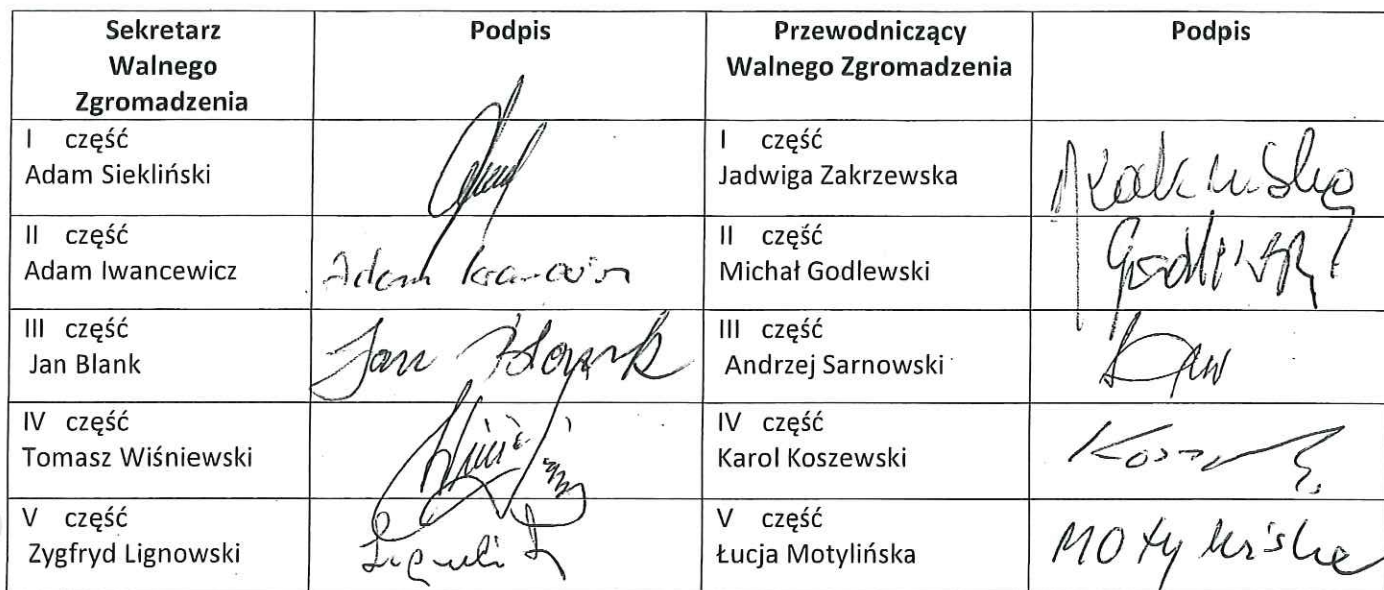 Sekretarz
Walnego
Zgromadzenia
Podpis
Przewodniczący
Walnego Zgromadzenia
Podpis
I część
Adam Siekliński
I część
Jadwiga Zakrzewska
II część
Adam Iwancewicz
Adam
II część
Michał Godlewski
III część
Jan Blank
Jan Blank
III część
Andrzej Sarnowski
IV część
Tomasz Wiśniewski
IV część
Karol Koszewski
V część
Zygfryd Lignowski
V część
Łucja Motylińska